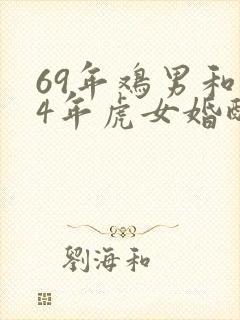 69年鸡男和
4年虎女婚
劉海和